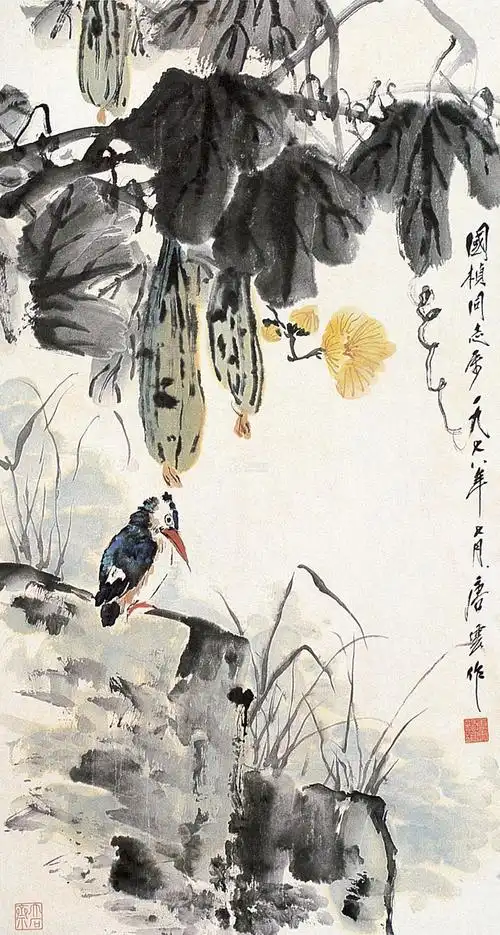 國楨同志属一九七八年七月唐雲作